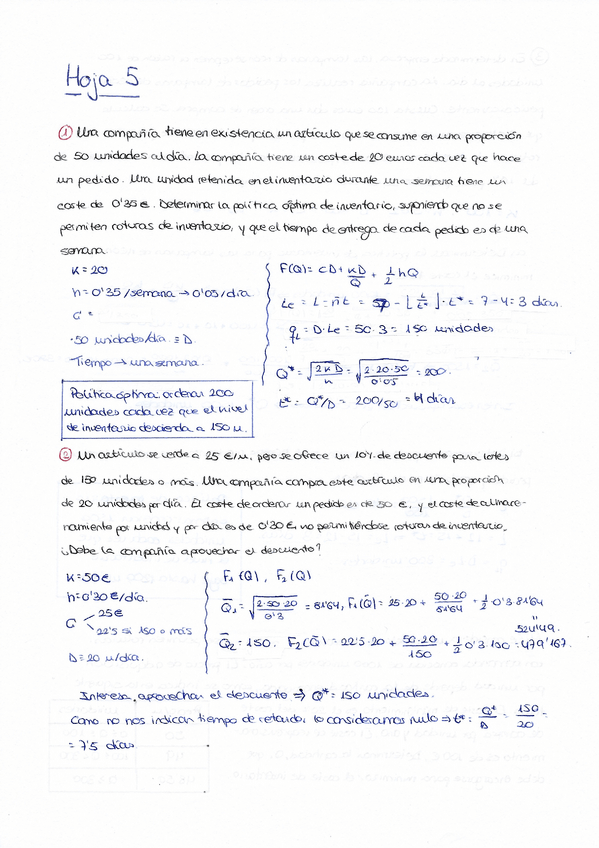 Hoja 5
① Una compañía tiene en existencia un artículo que se consume en una proporción
de 50 unidades al día. La compañía tiene un coste de 20 euros cada vez que hace
un pedido. Una unidad retenida en el inventario durante una semana tiene un
coste de 0'35 €. Determinar la política óptima de inventario, suponiendo que no se
permiten roturas de inventario, y que el tiempo de entrega de cada pedido es de una
semana.
K = 20
h = 0'35/semana → 0'05/día.
C =
· 50 unidades/día ≡ D.
Tiempo → una semana.
Política óptima: ordenar 200
unidades cada vez que el nivel
de inventario descienda a 150 u.
F(Q) = CD + KD/Q + 1/2 hQ
Le = L - nt = - ⌊L/t*⌋ · t* = 7 - 4 = 3 días.
q_L = D · Le = 50 · 3 = 150 unidades
Q* = √(2KD/h) = √(2·20·50/0'05) = 200.
t* = Q*/D = 200/50 = 4 días
② Un artículo se vende a 25 €/u, pero se ofrece un 10% de descuento para lotes
de 150 unidades o más. Una compañía compra este artículo en una proporción
de 20 unidades por día. El coste de ordenar un pedido es de 50 €, y el coste de almace-
namiento por unidad y por día es de 0'30 €, no permitiéndose roturas de inventario.
¿Debe la compañía aprovechar el descuento?
K = 50 €
h = 0'30 €/día.
C < 25 €
22'5 si 150 o más
D = 20 u/día.
F₁(Q), F₂(Q)
Q̄₁ = √(2·50·20/0'3) = 81'64, F₁(Q̄) = 25·20 + 50·20/81'64 + 1/2 0'3·81'64
= 524'49.
Q̄₂ = 150. F₂(Q̄) = 22'5·20 + 50·20/150 + 1/2 0'3·150 = 479'167.
Interesa aprovechar el descuento ⇒ Q* = 150 unidades.
Como no nos indican tiempo de retardo, lo consideramos nulo ⇒ t* = Q*/D = 150/20 =
= 7'5 días